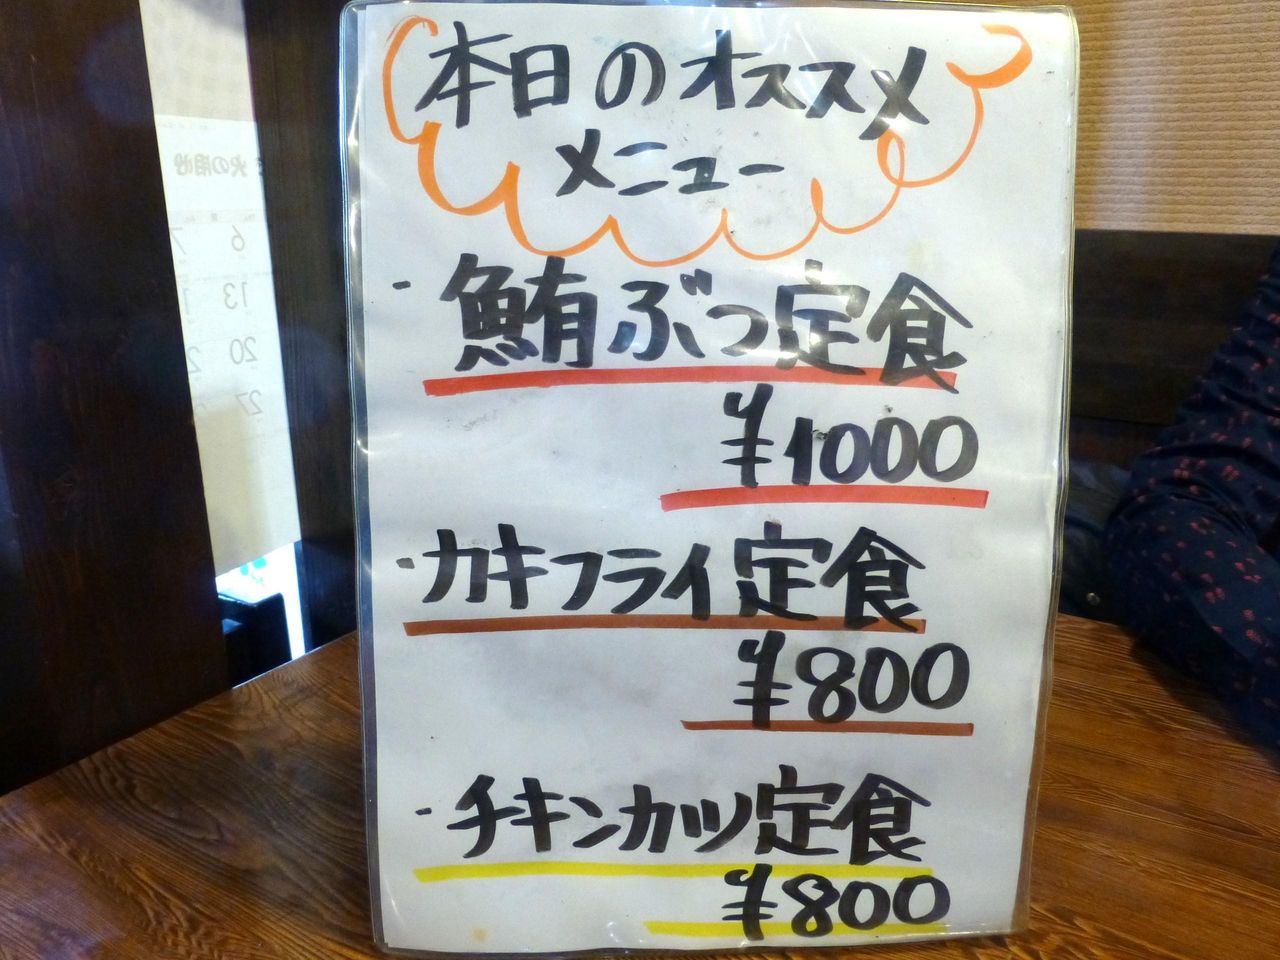 本日のオススメ
メニュー
・鮪ぶつ定食
¥1000
・カキフライ定食
¥800
・チキンカツ定食
¥800
6
7
13
20
27